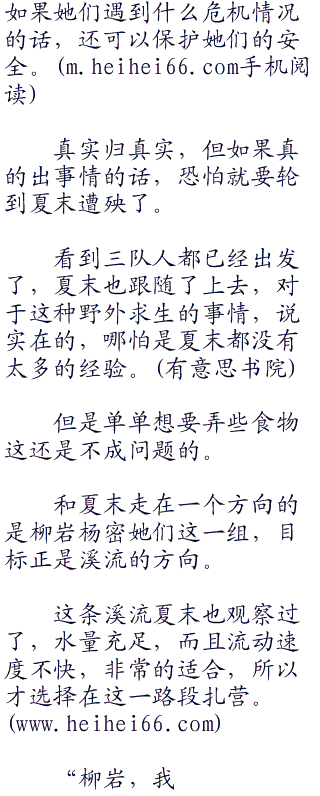 如果她们遇到什么危机情况
的话，还可以保护她们的安
全。(m.heihei66.com手机阅
读)
真实归真实，但如果真
的出事情的话，恐怕就要轮
到夏末遭殃了。
看到三队人都已经出发
了，夏末也跟随了上去，对
于这种野外求生的事情，说
实在的，哪怕是夏末都没有
太多的经验。(有意思书院)
但是单单想要弄些食物
这还是不成问题的。
和夏末走在一个方向的
是柳岩杨密她们这一组，目
标正是溪流的方向。
这条溪流夏末也观察过
了，水量充足，而且流动速
度不快，非常的适合，所以
才选择在这一路段扎营。
(www.heihei66.com)
“柳岩，我